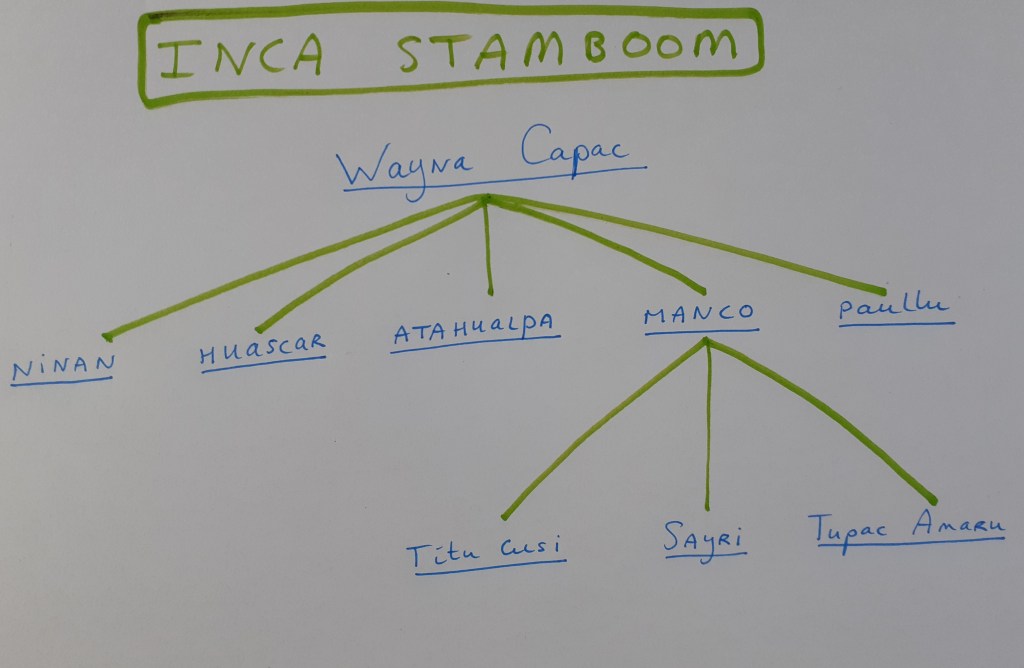 INCA STAMBOOM
Wayna Capac
NINAN
HUASCAR
ATAHUALPA
MANCO
Paullu
Titu Cusi
SAYRi
Tupac Amaru